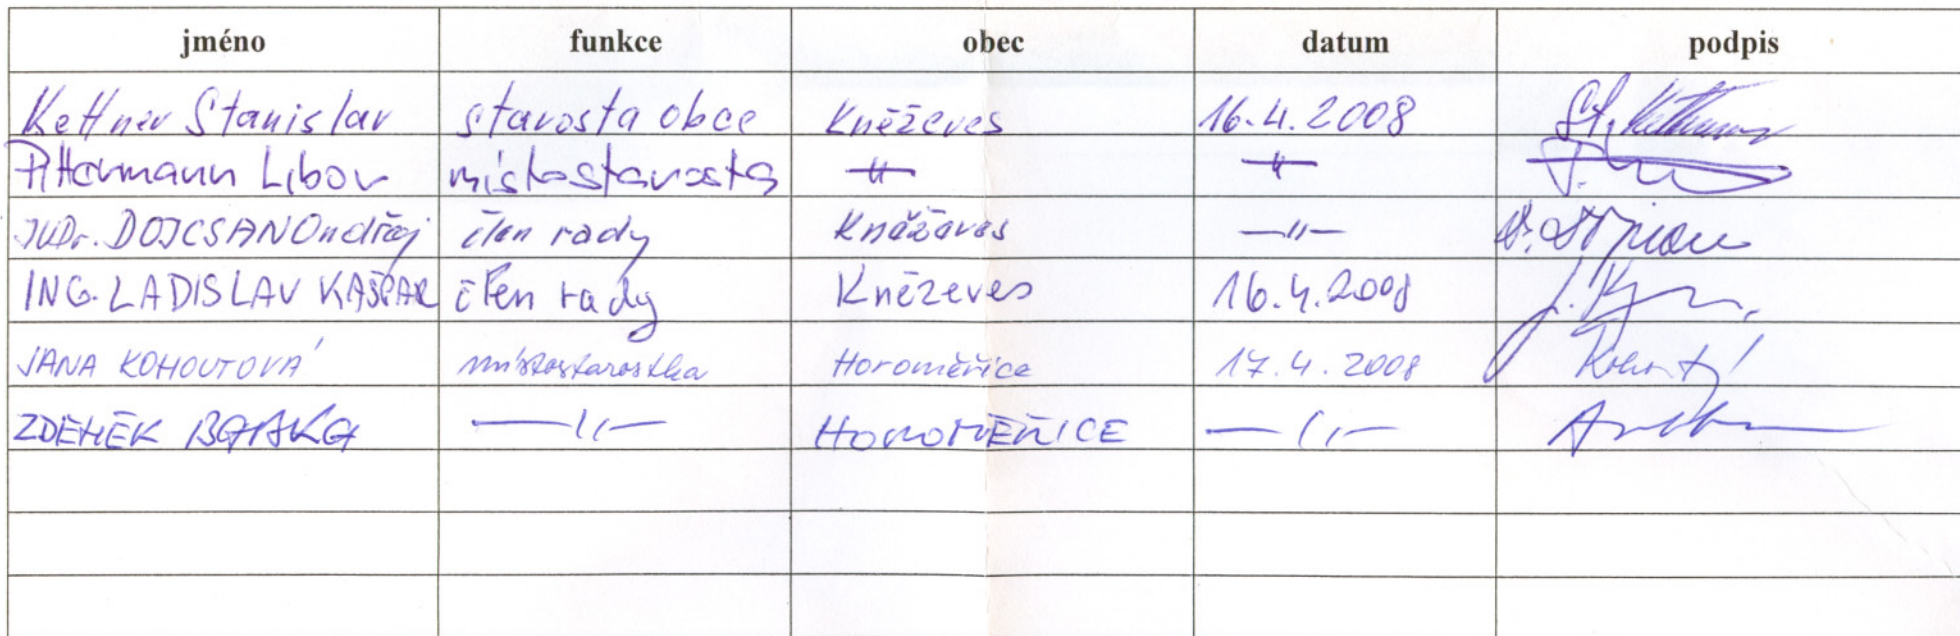 jméno funkce obec datum podpis
Kettner Stanislav starosta obce Kněževes 16.4.2008 St. Kettner
Pittermann Libor místostarosta —"—  —"—
JUDr. DOJCSAN Ondřej člen rady Kněževes —"—
ING. LADISLAV KAŠPAR člen rady Kněževes 16.4.2008
JANA KOHOUTOVÁ místostarostka Horoměřice 17.4.2008
ZDENĚK —"— HOROMĚŘICE —"—